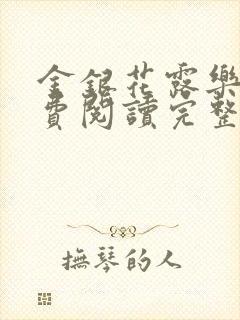 金銀花露樂
費閱讀完整
撫琴的人